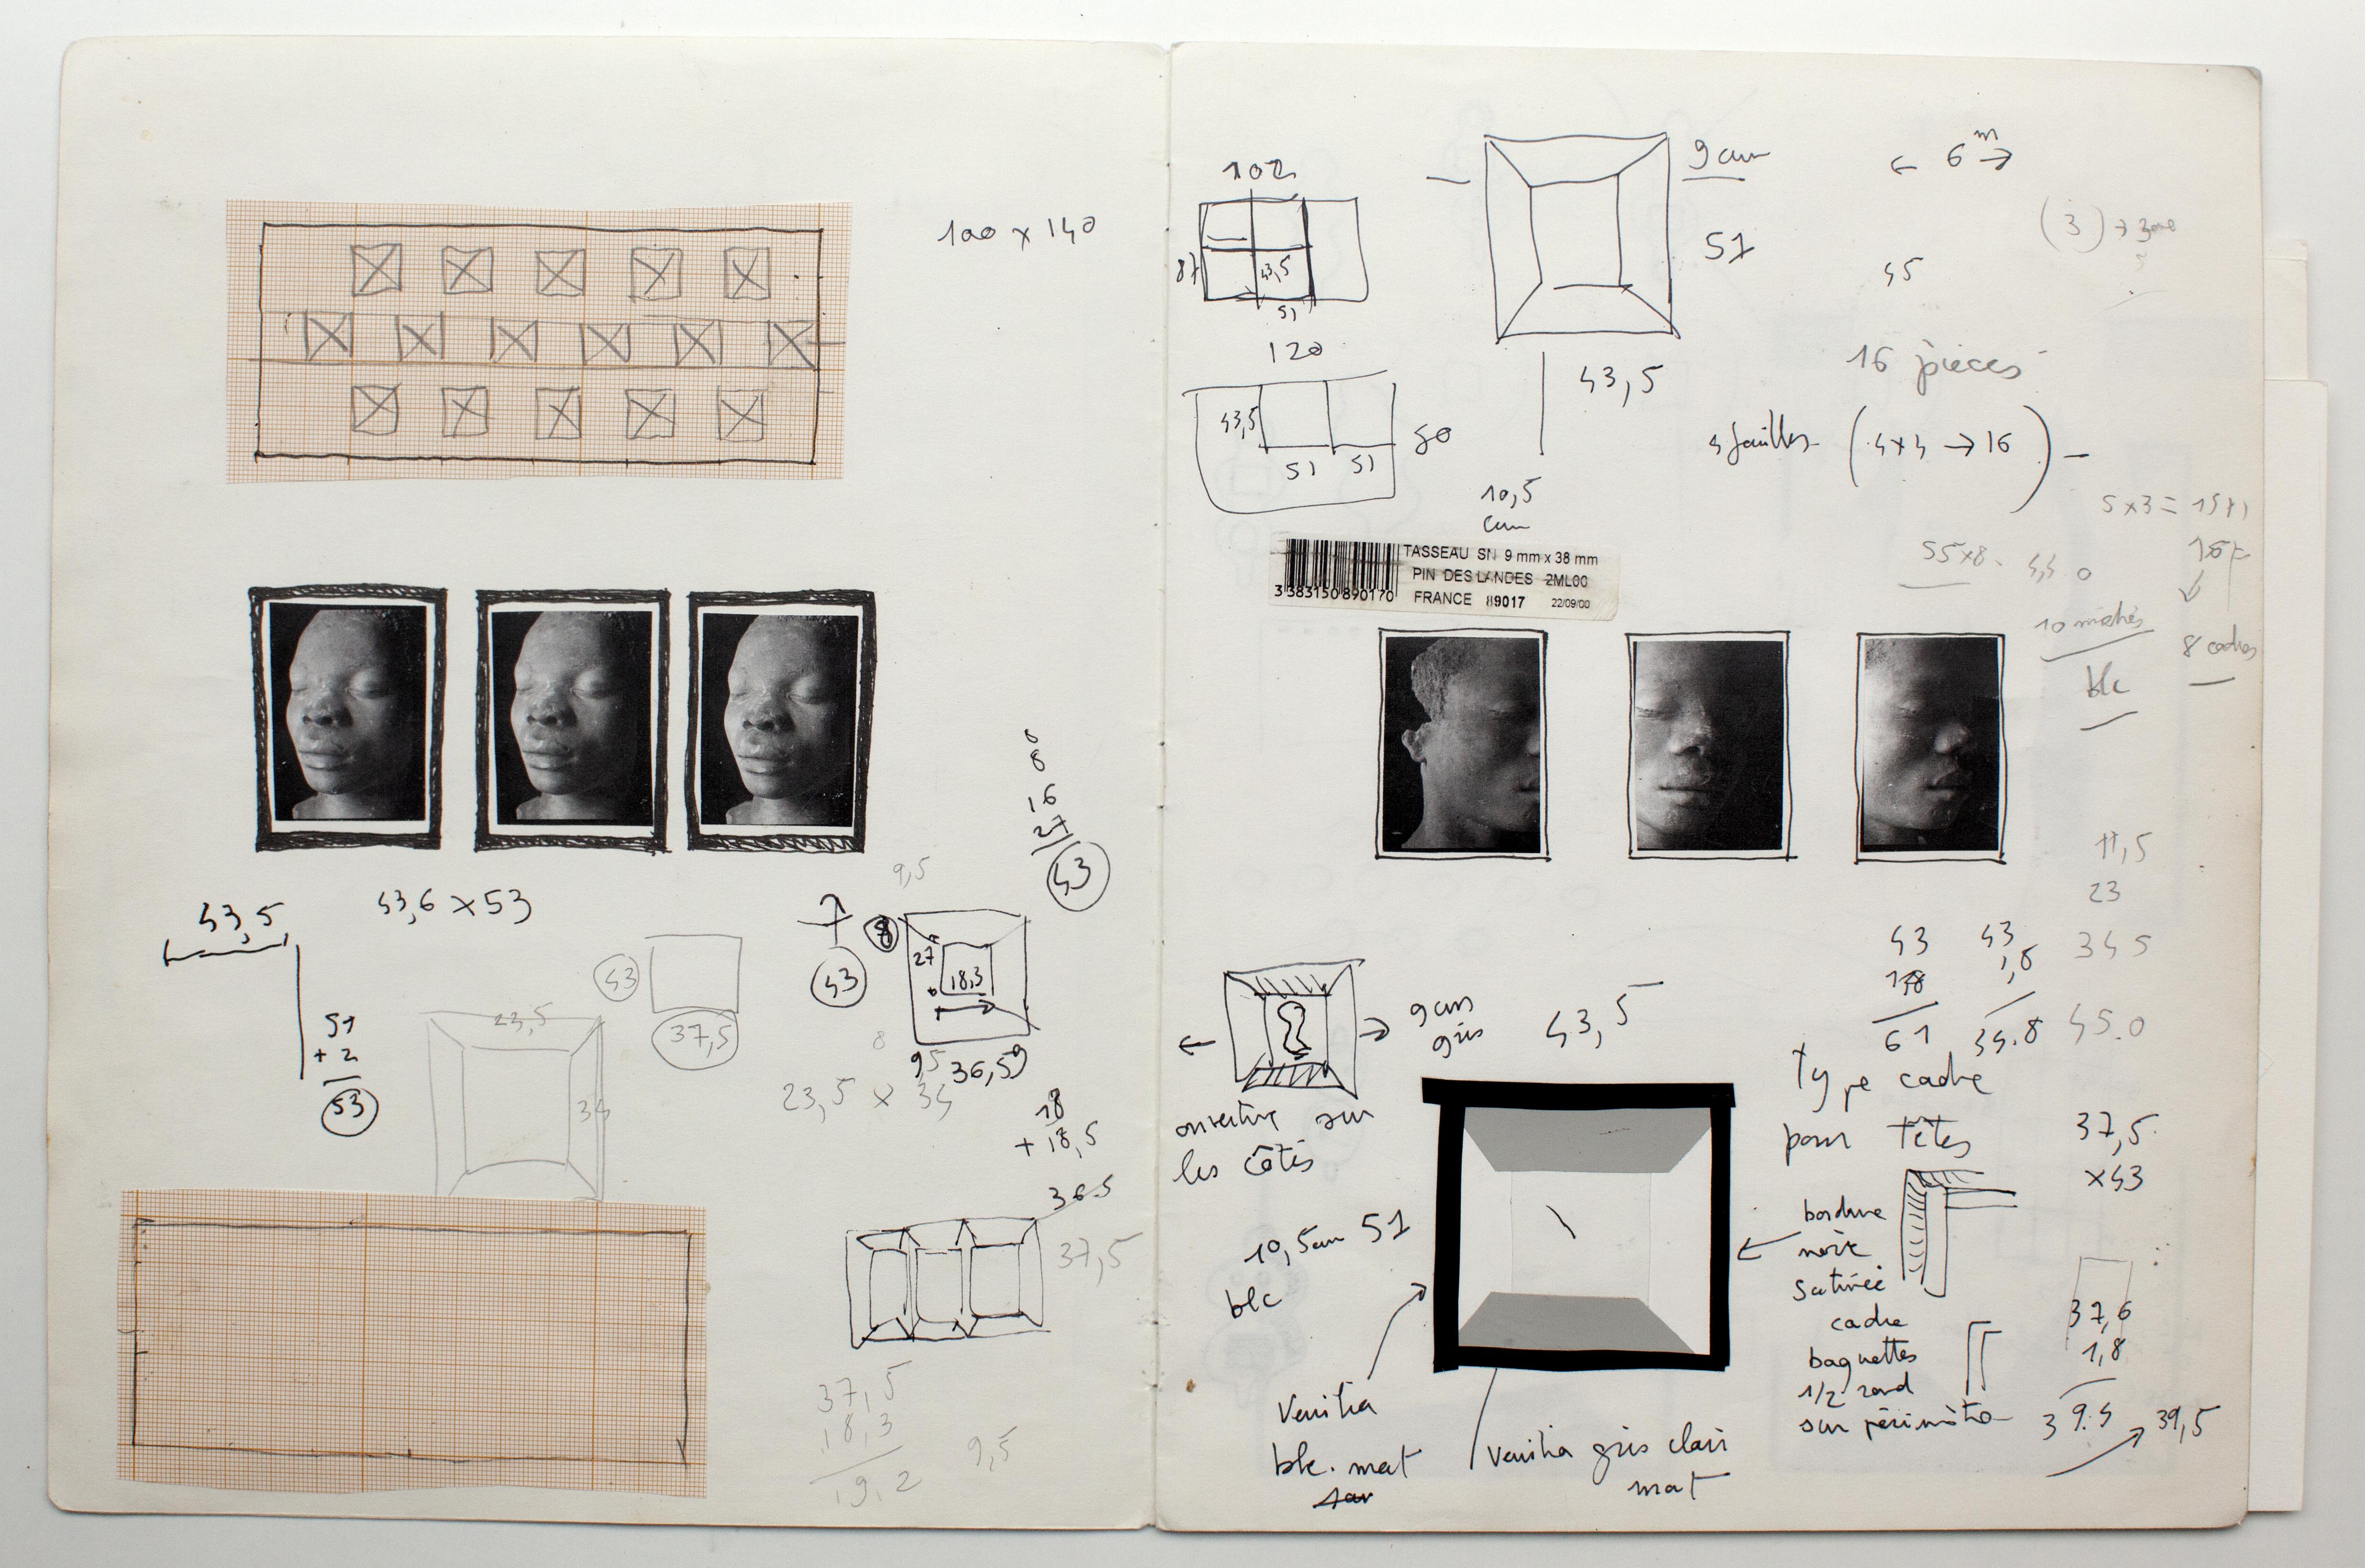 100 x 140
43,5
43,6 x 53
51
+ 2
53
23,5
34
43
37,5
9,5
8
8
16
27
43
43
8
27
18,3
8
9,5
36,5
9
23,5 x 34
18
+ 18,5
36.5
37,5
37,5
18,3
19,2
9,5
102
87
43,5
51
120
43,5
51
51
80
9 cm
51
43,5
10,5
cm
← 6 m →
(3) →
45
16 pièces
4 feuilles (4x4 → 16)
5 x 3 = 15+1
55x8
440
10 mètres
blc
8 cadres
TASSEAU SN 9 mm x 38 mm
PIN DES LANDES 2ML00
FRANCE 89017 22/09/00
3 383150 890170
11,5
23
345
45.0
43
18
61
43
1,8
9 cm
gris
43,5
ouverture sur
les côtés
10,5 cm 51
blc
Venilia
blc. mat
Venilia gris clair
mat
Type cadre
pour têtes
bordure
noire
satinée
cadre
baguettes
1/2 rond
sur périmètre
37,5
x43
37,6
1,8
39.4
39,5